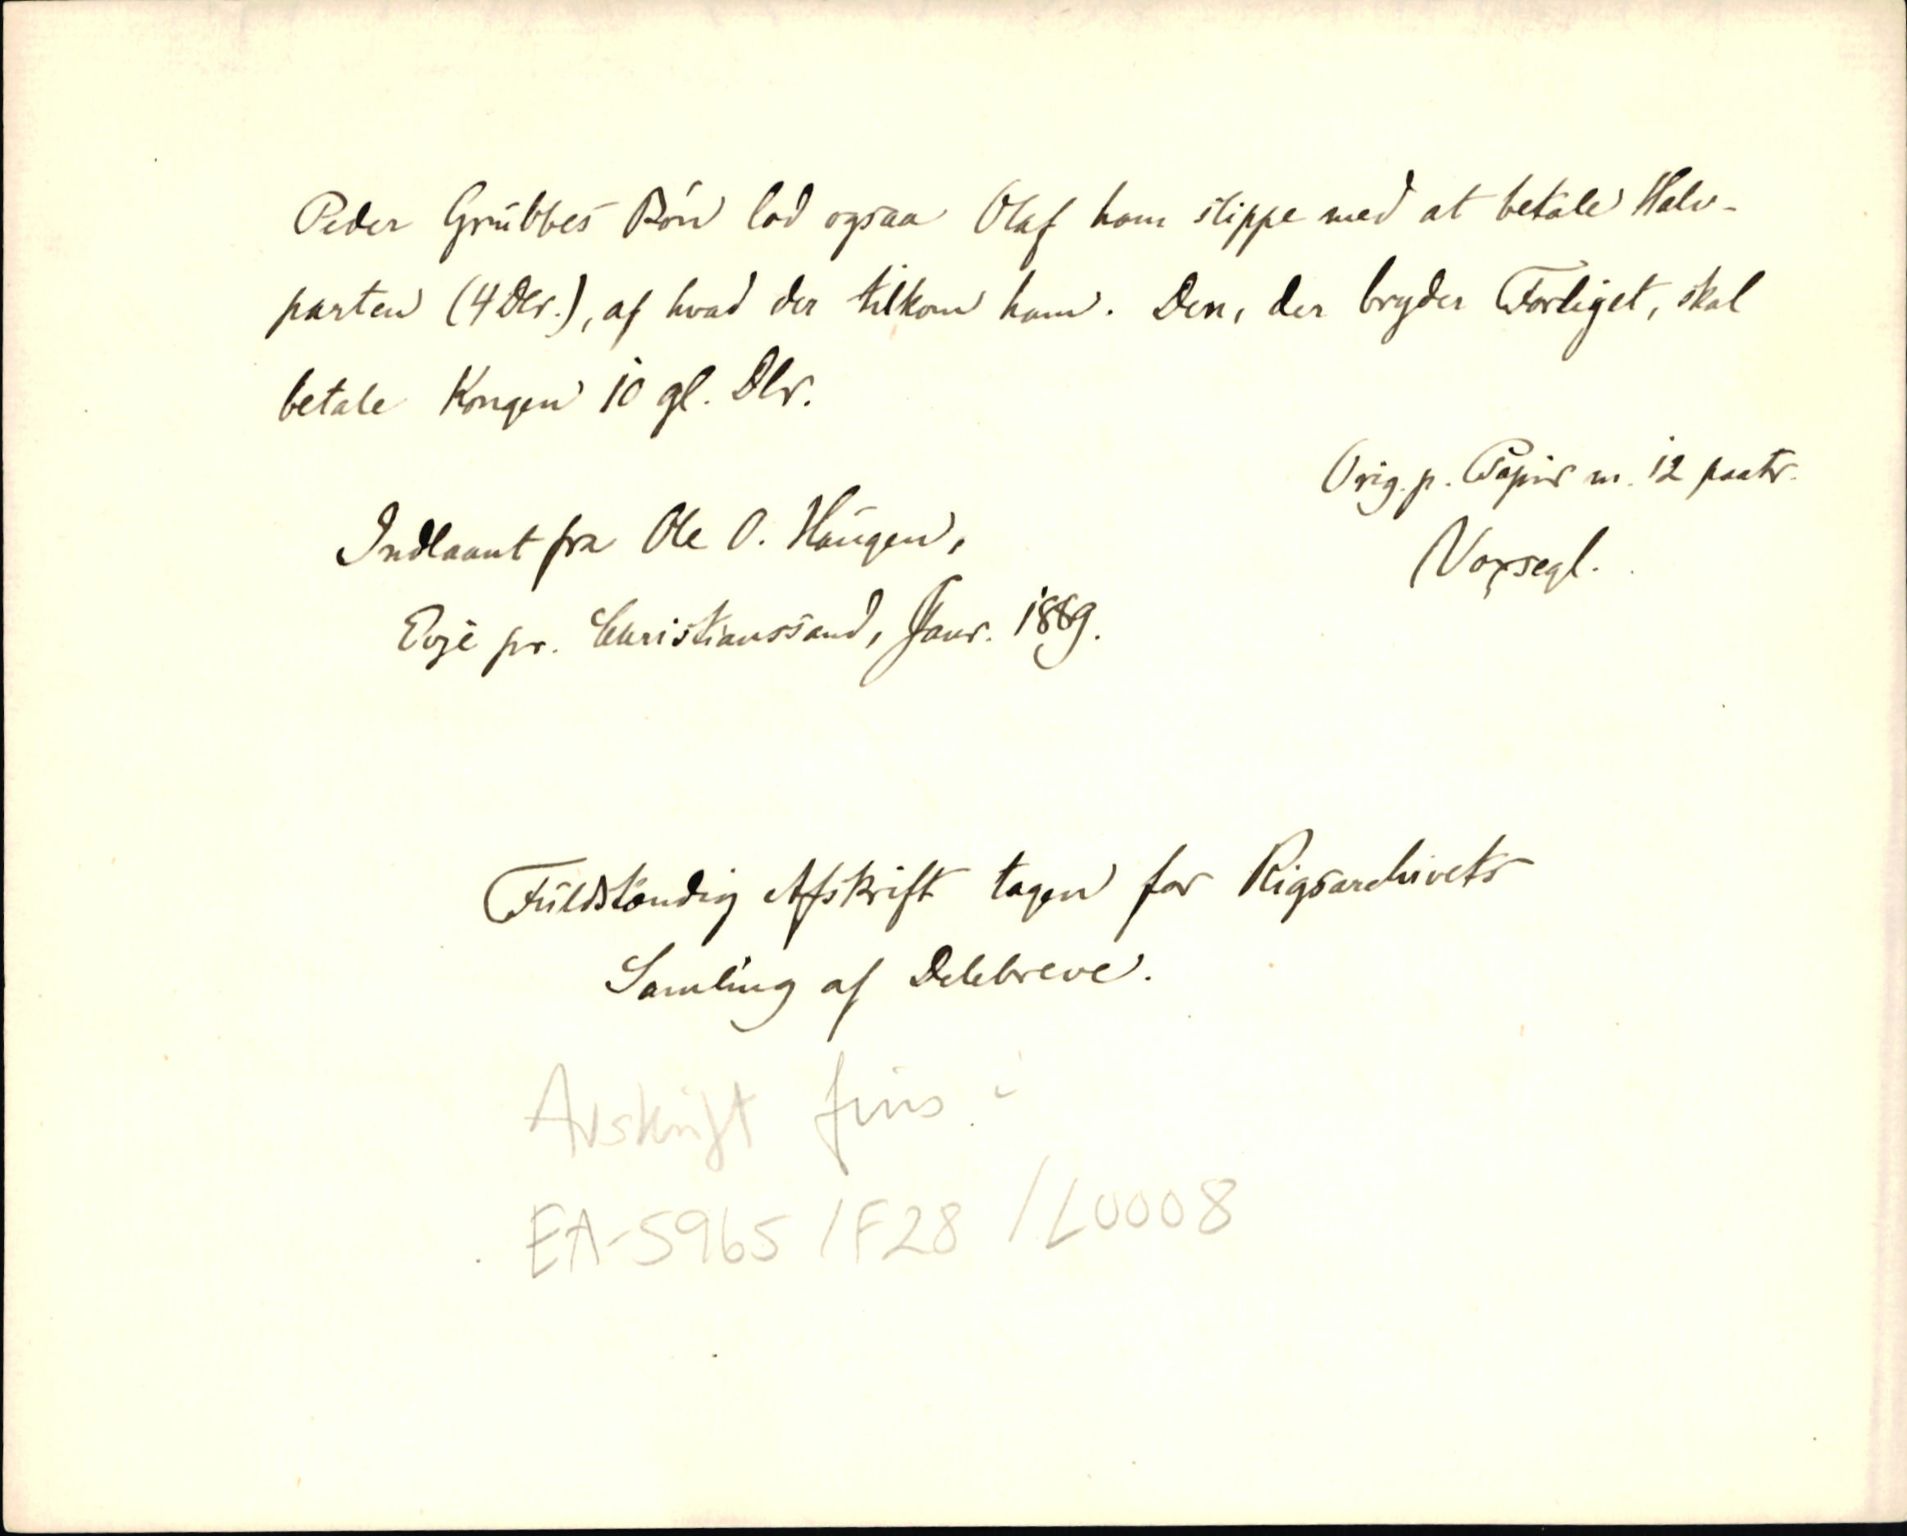 Peder Grubbes Bøn lod ogsaa Olaf ham slippe med at betale Halv-
parten (4 Dlr.), af hvad der tilkom ham. Den, der bryder Forliget, skal
betale Kongen 10 gl. Dlr.
Orig. p. Papir m. 12 paatr.
Voxsegl.
Indlaant fra Ole O. Haugen,
Evje pr. Christianssand, Janr. 1889.
Fuldstændig Afskrift tagen for Rigsarchivets
Samling af Delebreve.
Avskrift fins i
EA-5965 / F28 / L0008